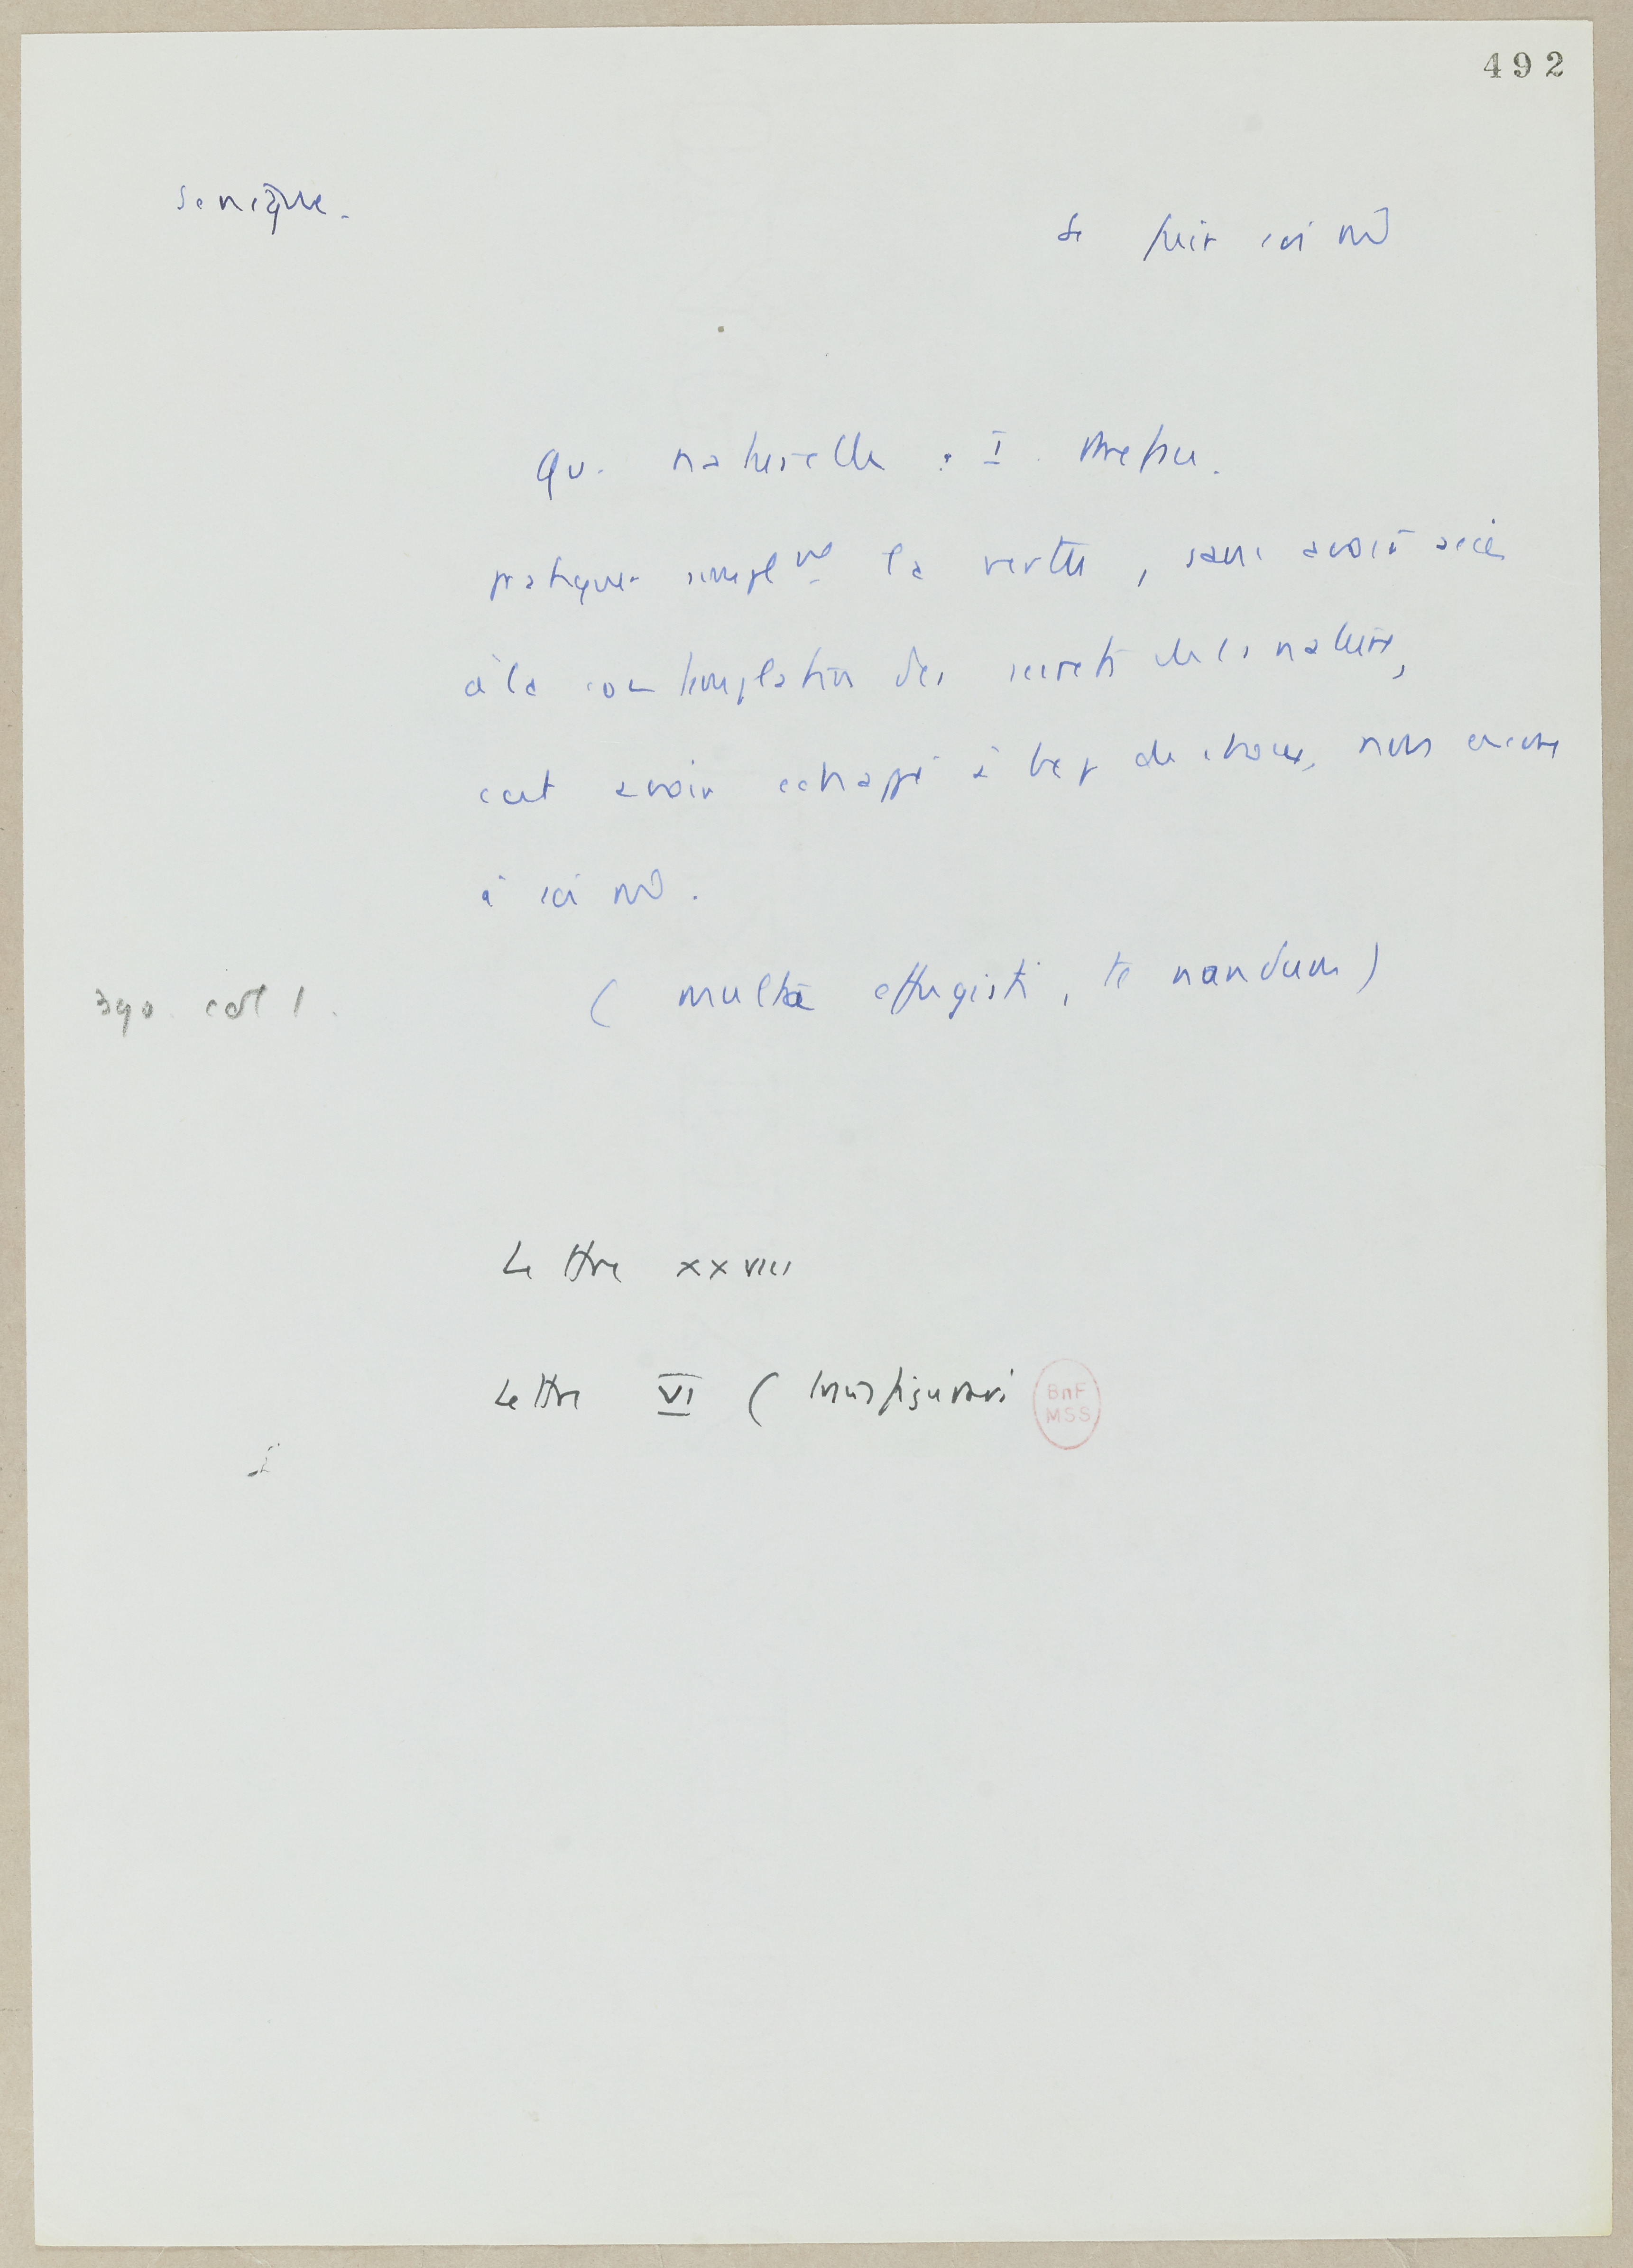 492
Sénèque.
se fuir soi m̂
Qu. naturelle : I. Prefac.
pratiquer simplmt la vertu, sans avoir accès
à la contemplation des secrets de la nature,
c'est avoir echappé à bcp de choses, non encore
à soi m̂.
390. col 1.
( multa effugisti, te nondum )
Lettre XXVIII
Lettre VI ( transfigurari
BnF
MSS